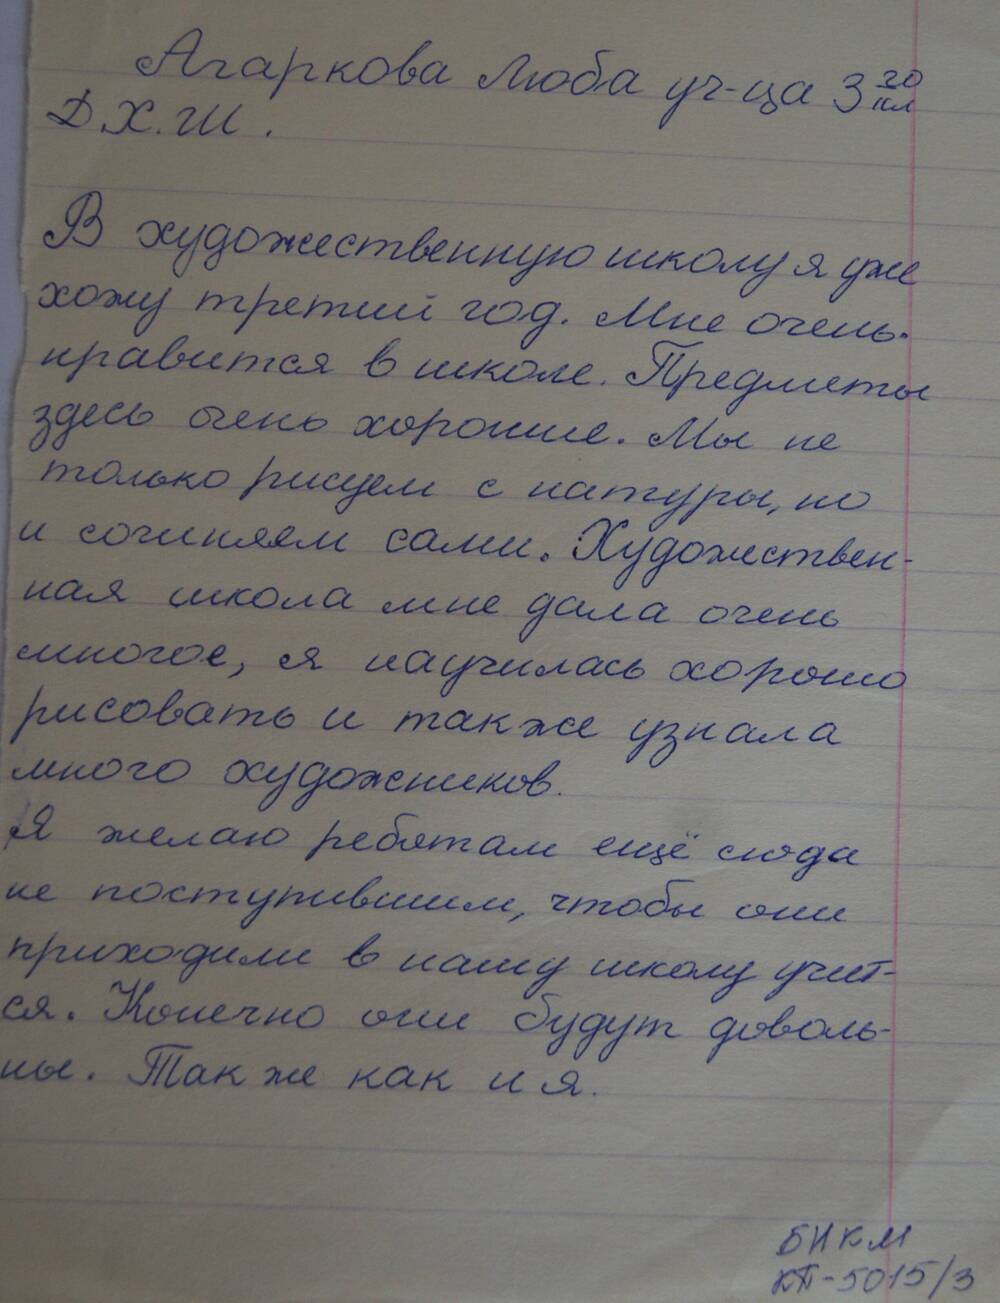 Агаркова Люба уч-ца 3 го кл
Д.Х.Ш.
В художественную школу я уже
хожу третий год. Мне очень
нравится в школе. Предметы
здесь очень хорошие. Мы не
только рисуем с натуры, но
и сочиняем сами. Художествен-
ная школа мне дала очень
многое, я научилась хорошо
рисовать и также узнала
много художников.
Я желаю ребятам ещё сюда
не поступившим, чтобы они
приходили в нашу школу учит-
ся. Конечно они будут доволь-
ны. Так же как и я.
БИКМ
КП-5015/3